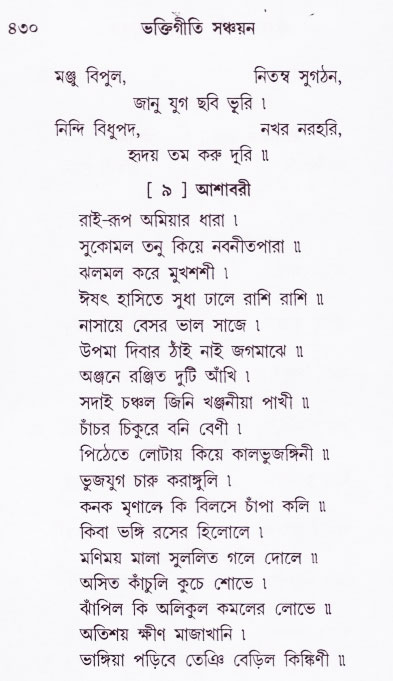 ৪৩০ ভক্তিগীতি সঞ্চয়ন
মঞ্জু বিপুল, নিতম্ব সুগঠন,
জানু যুগ ছবি ভূরি ৷
নিন্দি বিধুপদ, নখর নরহরি,
হৃদয় তম করু দূরি ৷৷
[ ৯ ] আশাবরী
রাই-রূপ অমিয়ার ধারা ৷
সুকোমল তনু কিয়ে নবনীতপারা ৷৷
ঝলমল করে মুখশশী ৷
ঈষৎ হাসিতে সুধা ঢালে রাশি রাশি ৷৷
নাসায়ে বেসর ভাল সাজে ৷
উপমা দিবার ঠাঁই নাই জগমাঝে ৷৷
অঞ্জনে রঞ্জিত দুটি আঁখি ৷
সদাই চঞ্চল জিনি খঞ্জনীয়া পাখী ৷৷
চাঁচর চিকুরে বনি বেণী ৷
পিঠেতে লোটায় কিয়ে কালভুজঙ্গিনী ৷৷
ভুজযুগ চারু করাঙ্গুলি ৷
কনক মৃণালে কি বিলসে চাঁপা কলি ৷৷
কিবা ভঙ্গি রসের হিলোলে ৷
মণিময় মালা সুললিত গলে দোলে ৷৷
অসিত কাঁচুলি কুচে শোভে ৷
ঝাঁপিল কি অলিকুল কমলের লোভে ৷৷
অতিশয় ক্ষীণ মাজাখানি ৷
ভাঙ্গিয়া পড়িবে তেঞি বেড়িল কিঙ্কিণী ৷৷